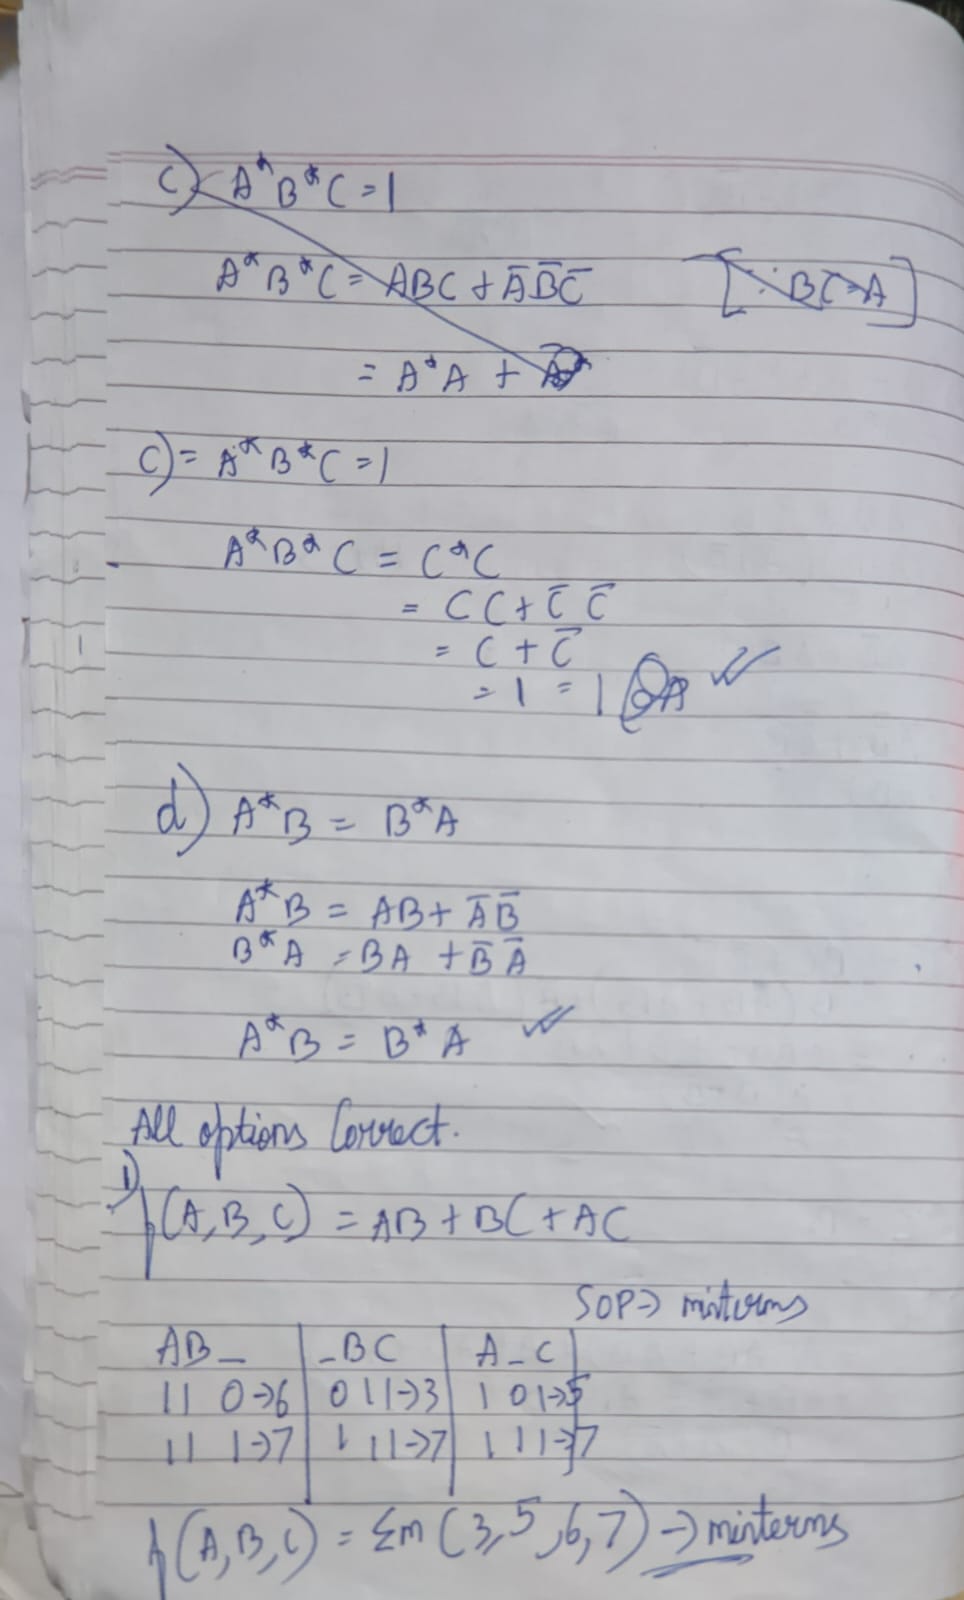 c) A*B*C=1
A*B*C = ABC + A̅ B̅ C̅ [∵ BC=A]
= A*A +
c) = A*B*C=1
A*B*C = C*C
= CC + C̅ C̅
= C + C̅
= 1 = 1
d) A*B = B*A
A*B = AB + A̅ B̅
B*A = BA + B̅ A̅
A*B = B*A
All options Correct.
1)
f(A,B,C) = AB + BC + AC
SOP→ minterms
AB_ | _BC | A_C
11 0→6 | 0 11→3 | 1 0 1→5
11 1→7 | 1 11→7 | 1 1 1→7
f(A,B,C) = Σm (3,5,6,7) → minterms